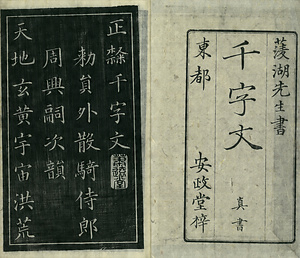 菱湖先生書
千字文
真書
東都 安政堂梓
正隸千字文
勅員外散騎侍郎
周興嗣次韻
天地玄黃宇宙洪荒